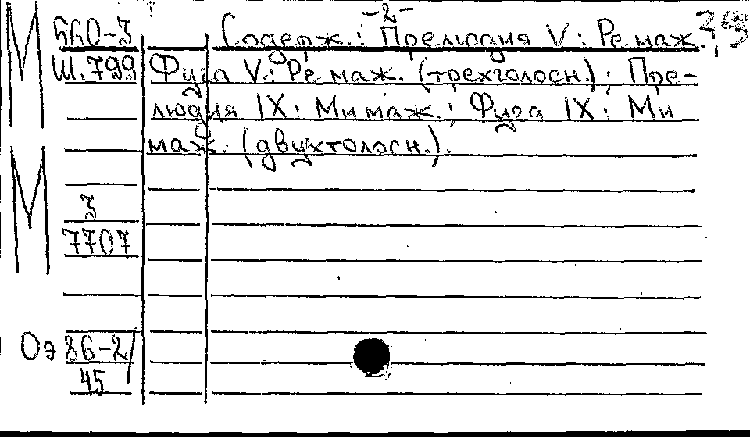 -2-
М 560-3 Содерж.: Прелюдия V: Ре маж.;
Ш.799 Фуга V: Ре маж. (трехголосн.); Пре-
людия IX: Ми маж.; Фуга IX: Ми
маж. (двухголосн.).
М
3
7707
Оэ 86-2/
45